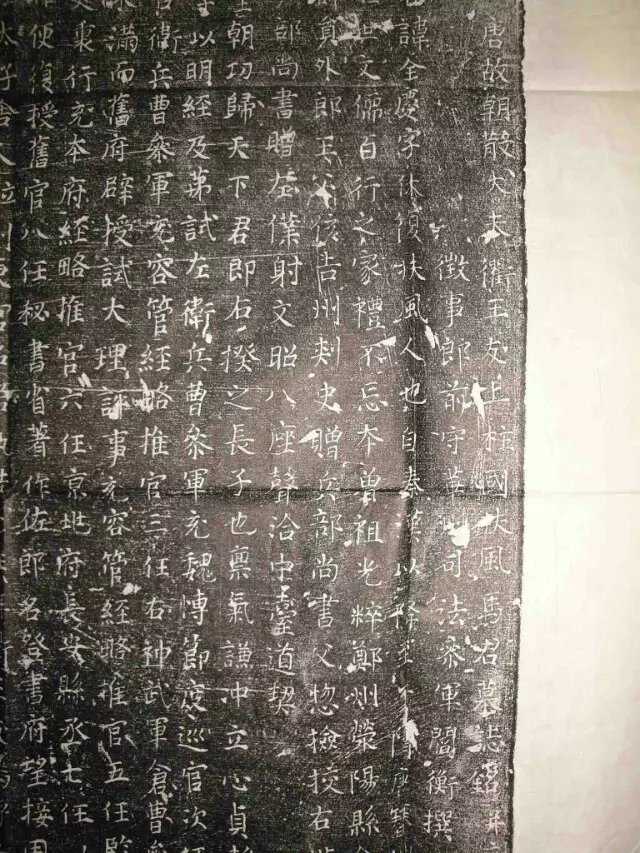 唐故朝散大夫衢王友上柱國扶風馬君墓誌銘并
徵事郎前守 司法叅軍閻衡撰
諱全慶字休復扶風人也自秦漢以降至
世文儒百行之家禮不忘本曽祖光粹鄭州滎陽縣
員外郎王父 吉州刾史贈兵部尚書父惣撿挍右
部尚書贈左僕射文昭八座聲洽中臺道契
朝功歸天下君即右揆之長子也禀氣謙冲立心貞
以明經及苐試左衛兵曹叅軍充魏愽節度巡官次任
衛兵曹叅軍充容管經略推官三任右神武軍倉曹
滿而舊府辟授試大理評事充容管經略推官五任監
裏行充本府經略推官六任京兆府長安縣丞七任
使復授舊官八任秘書省著作佐郎名登書府望接
太子舍人